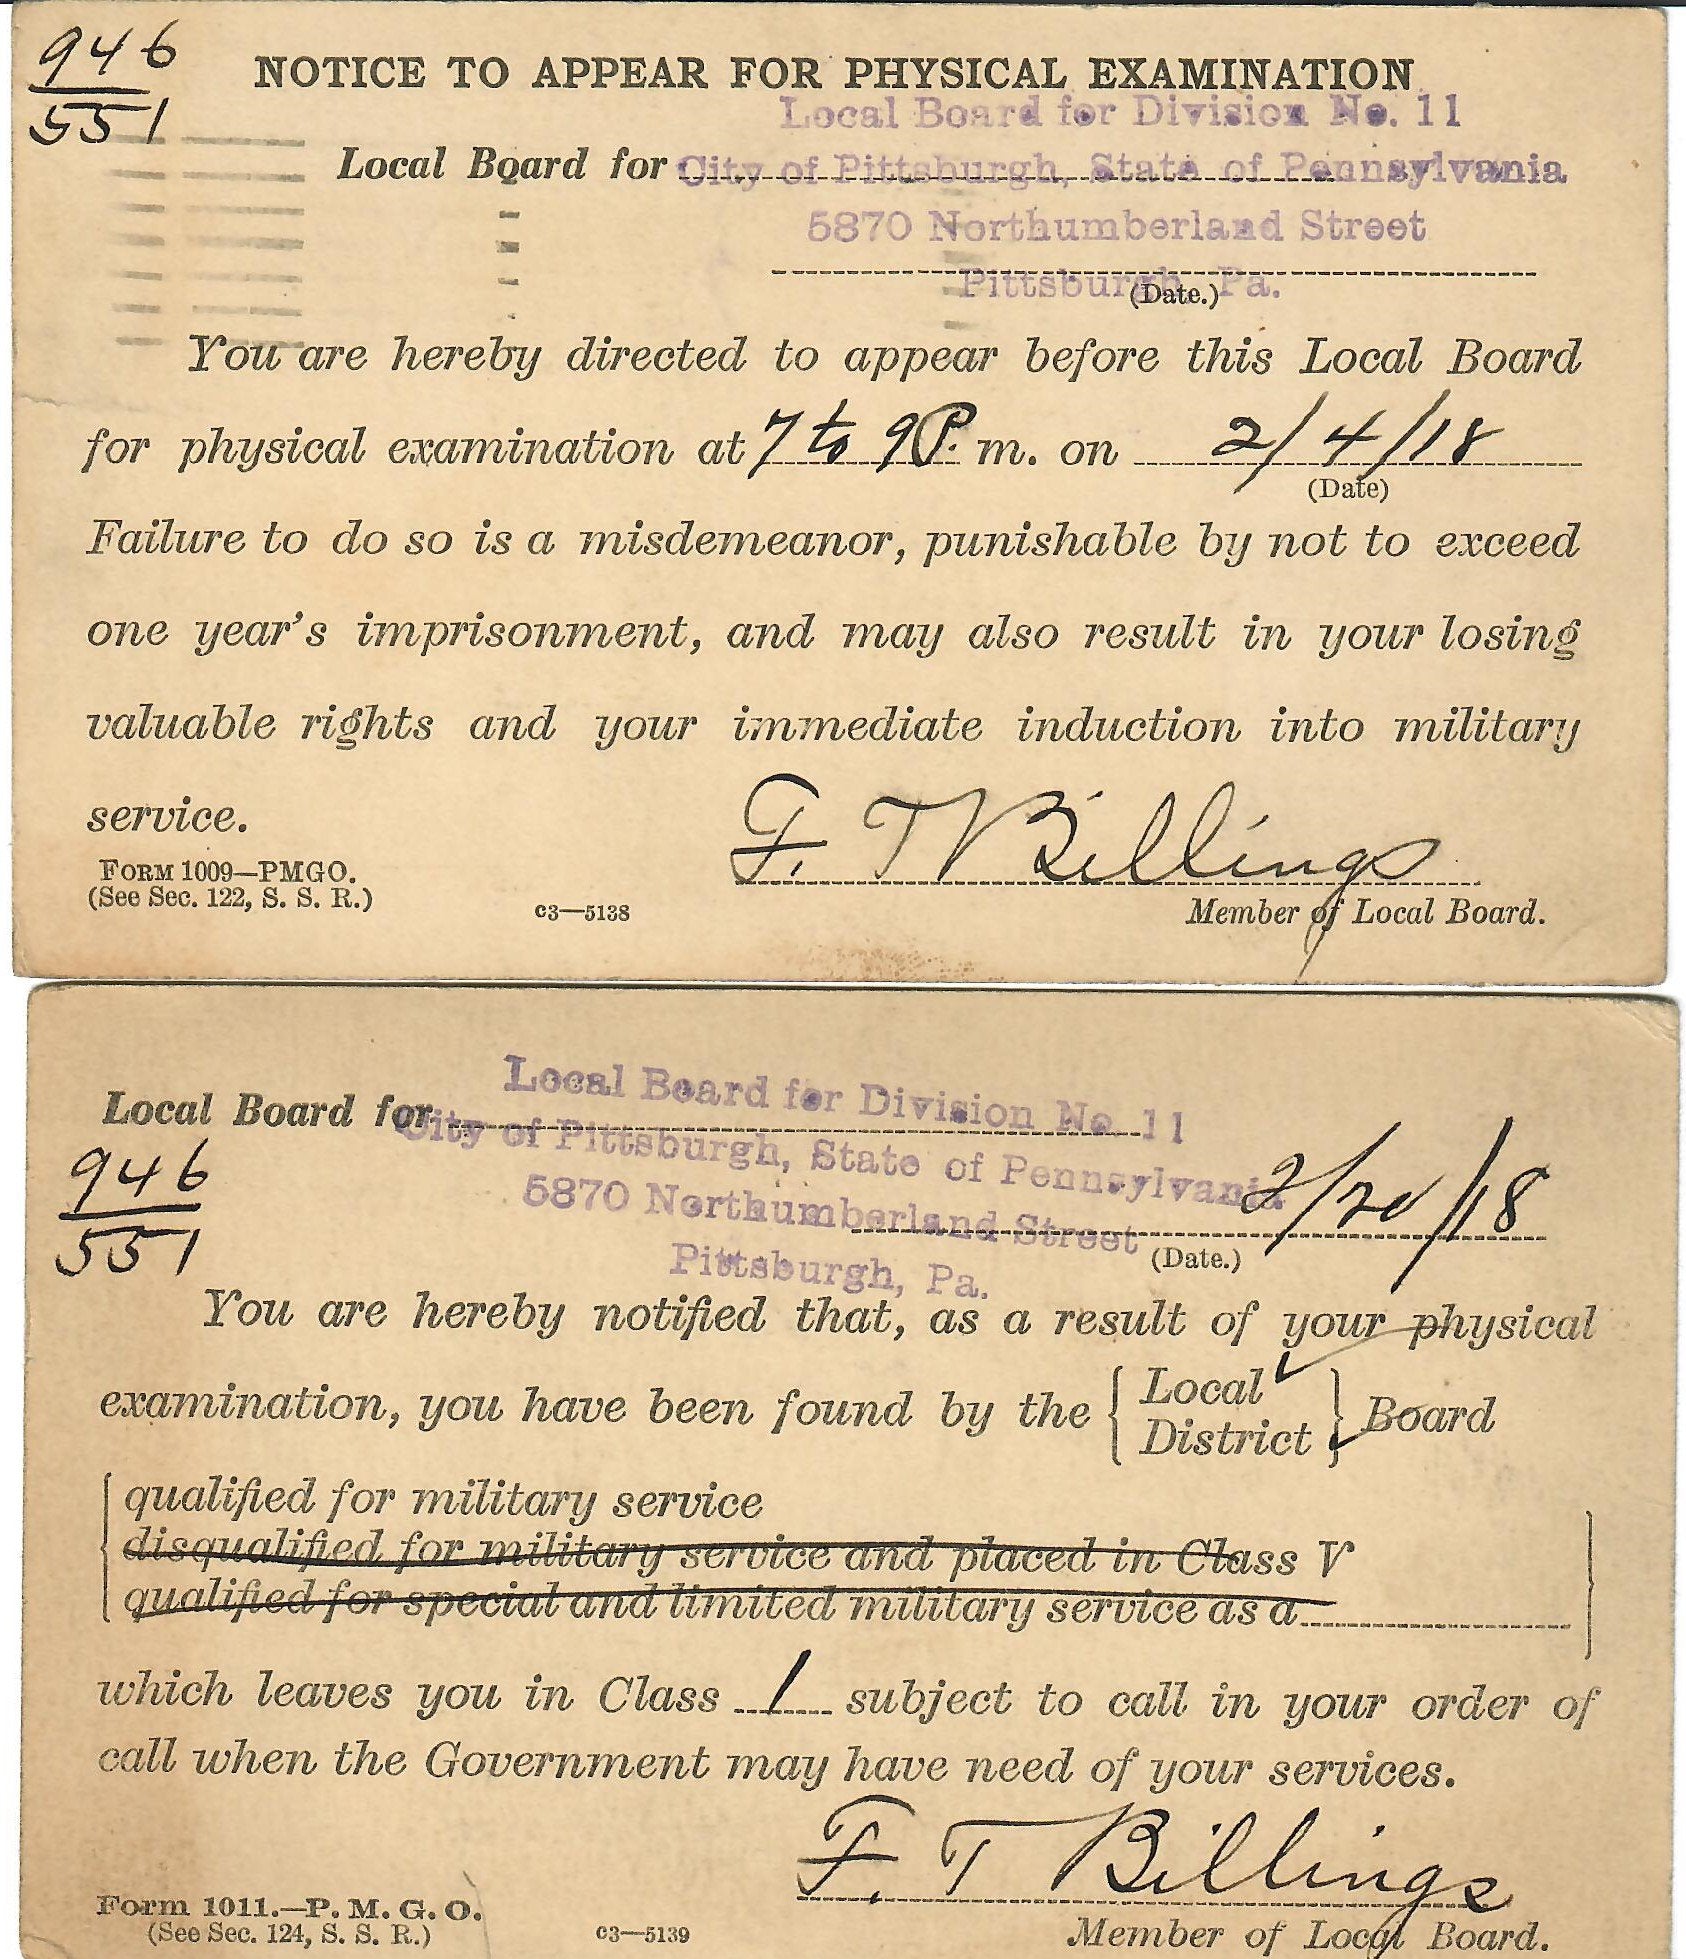 946
551
NOTICE TO APPEAR FOR PHYSICAL EXAMINATION
Local Board for Division No. 11
Local Board for City of Pittsburgh, State of Pennsylvania
5870 Northumberland Street
Pittsburgh, Pa.
(Date.)
You are hereby directed to appear before this Local Board
for physical examination at 7 to 9 P. m. on 2/4/18
(Date)
Failure to do so is a misdemeanor, punishable by not to exceed
one year's imprisonment, and may also result in your losing
valuable rights and your immediate induction into military
service.
F. T Billings
FORM 1009—PMGO.
(See Sec. 122, S. S. R.)
C3—5138
Member of Local Board.
Local Board for Division No 11
Local Board for City of Pittsburgh, State of Pennsylvania
946
551
5870 Northumberland Street
2/20/18
Pittsburgh, Pa.
(Date.)
You are hereby notified that, as a result of your physical
examination, you have been found by the { Local District } Board
qualified for military service
disqualified for military service and placed in Class V
qualified for special and limited military service as a
which leaves you in Class 1 subject to call in your order of
call when the Government may have need of your services.
F. T Billings
Form 1011.—P. M. G. O.
(See Sec. 124, S. S. R.)
C3—5139
Member of Local Board.